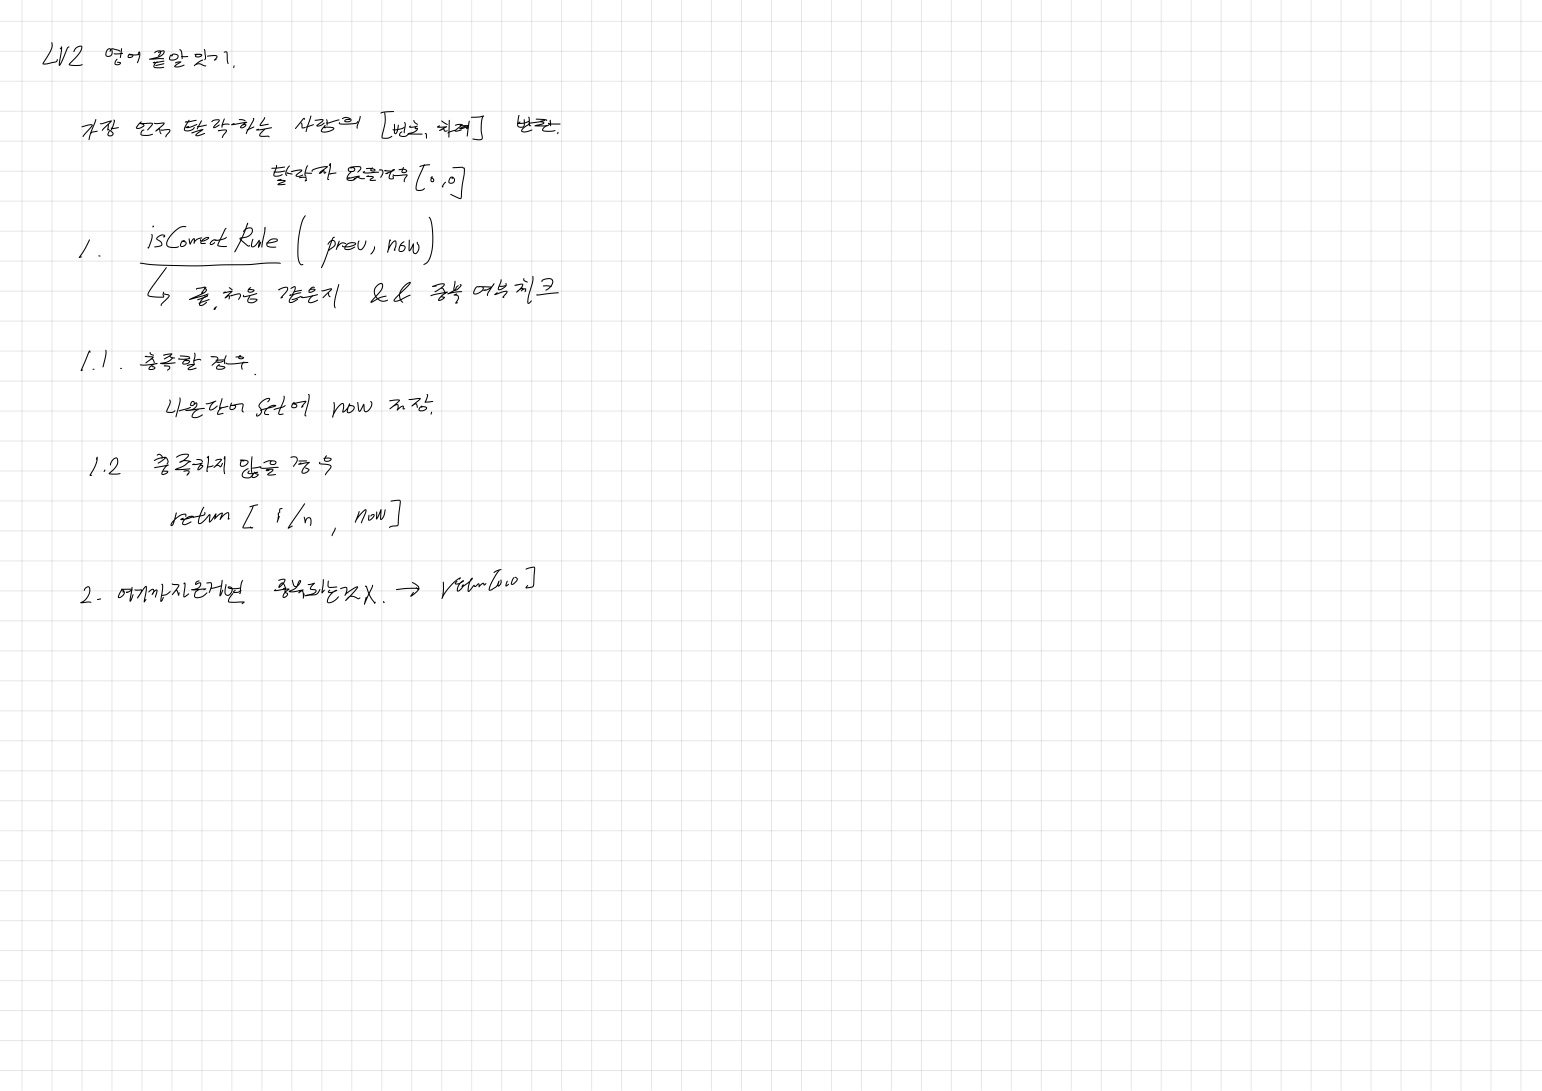 LV2 영어 끝말잇기.
가장 먼저 탈락하는 사람의 [번호, 차례] 반환.
탈락자 없을경우 [0,0]
1. isCorrect Rule ( prev, now)
↳ 끝, 처음 같은지 && 중복 여부체크
1.1. 충족할 경우.
나온단어 Set에 now 저장.
1.2 충족하지 않을 경우
return [ i/n , now]
2. 여기까지온거면 중복되는것X. → return[0,0]